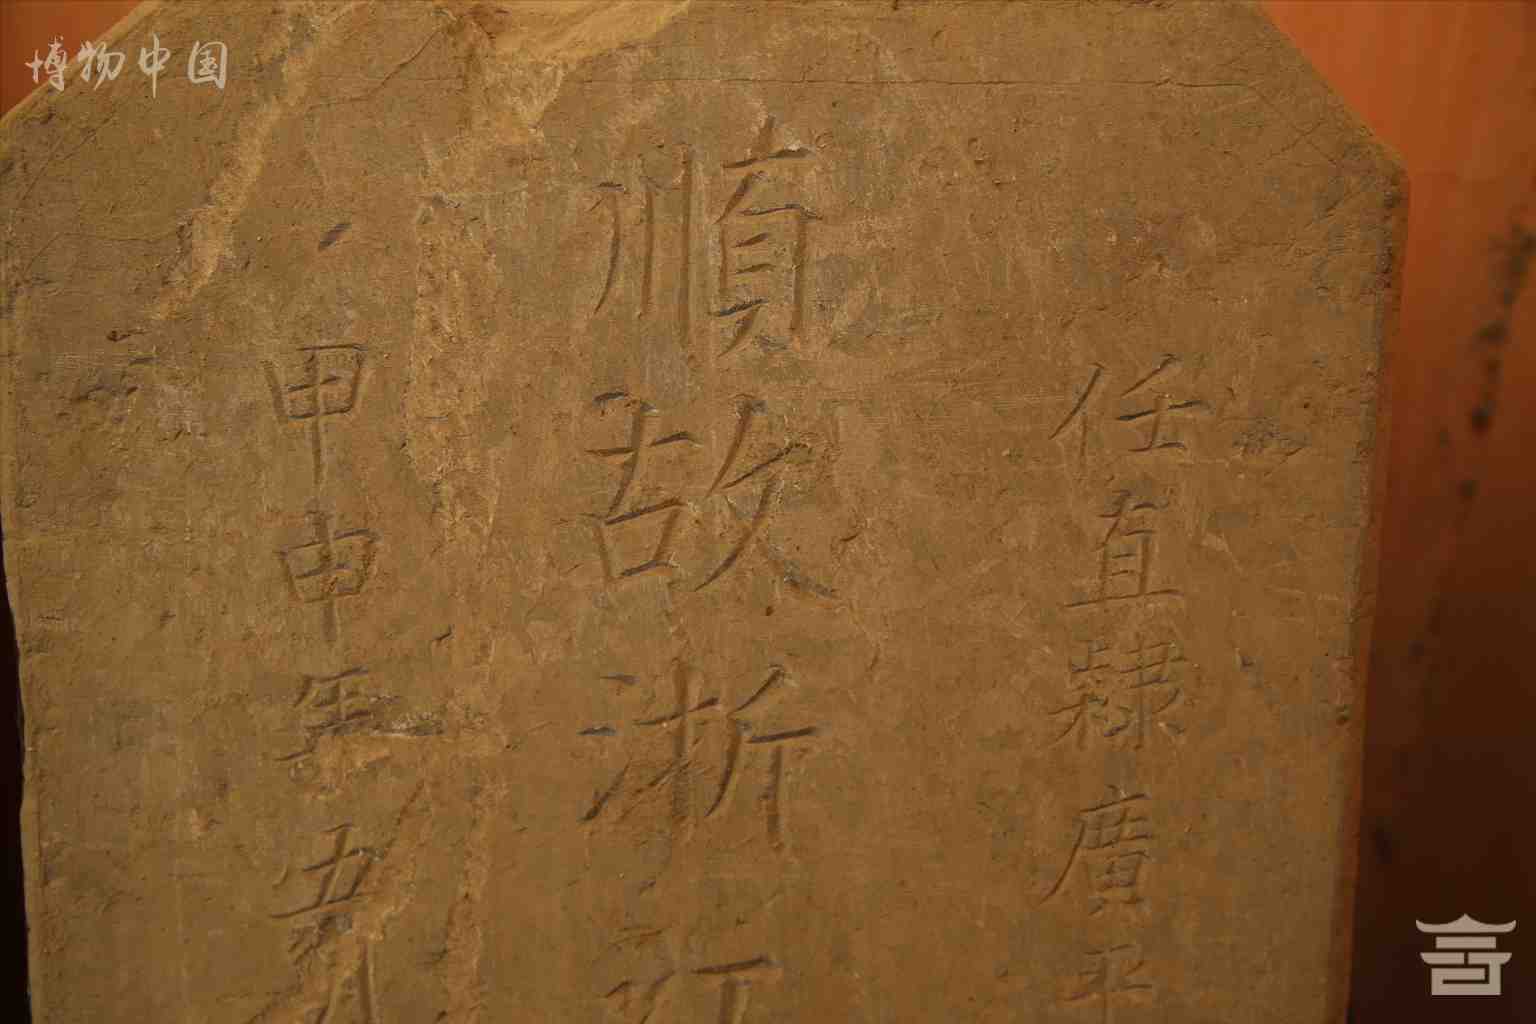 博物中国
任直隸廣平
順故浙江
甲申年五月